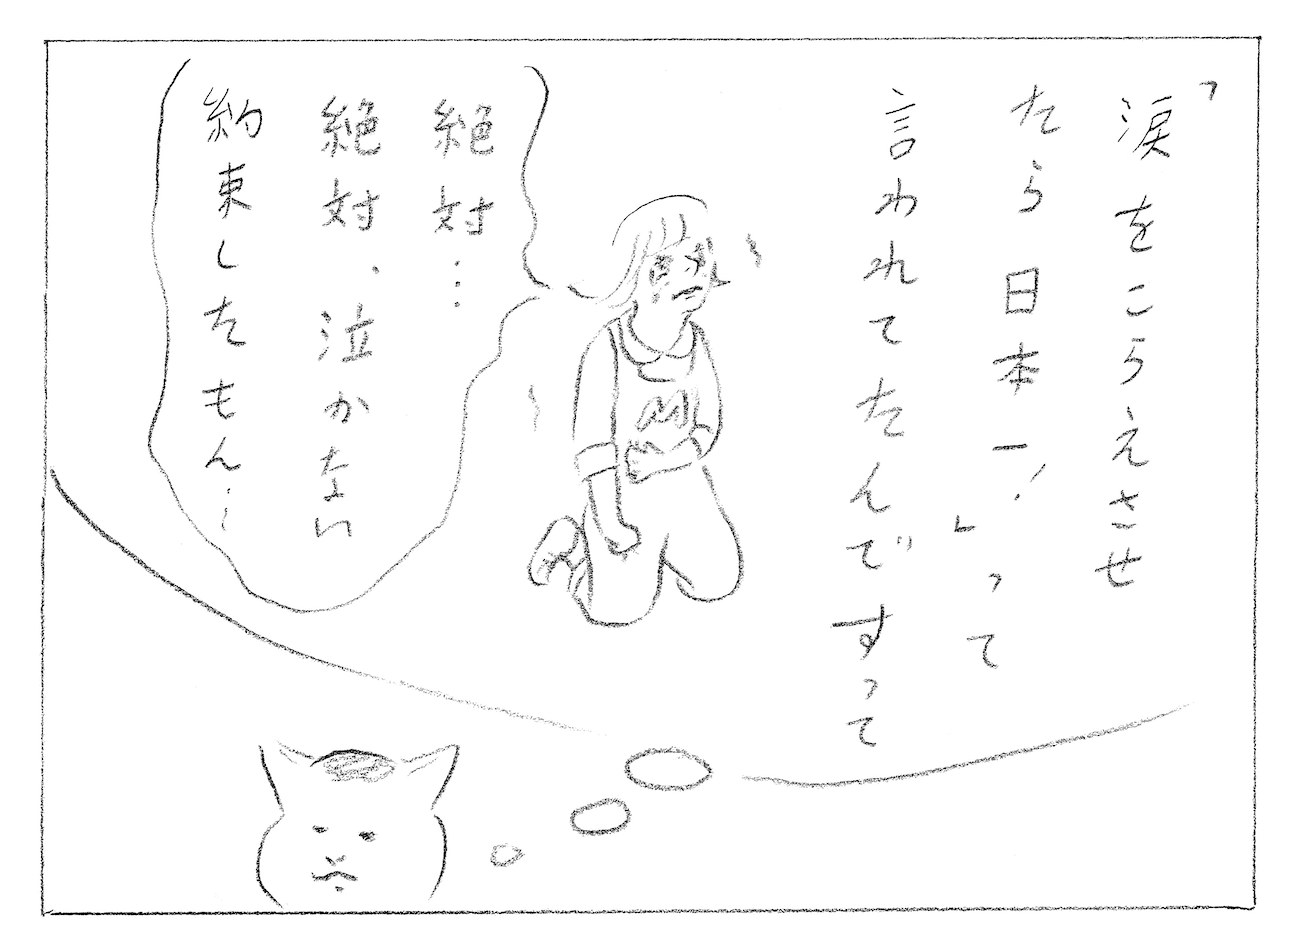 「涙をこらえさせ
たら日本一!」って
言われてたんですって
絶対…
絶対、泣かない
約束したもん…